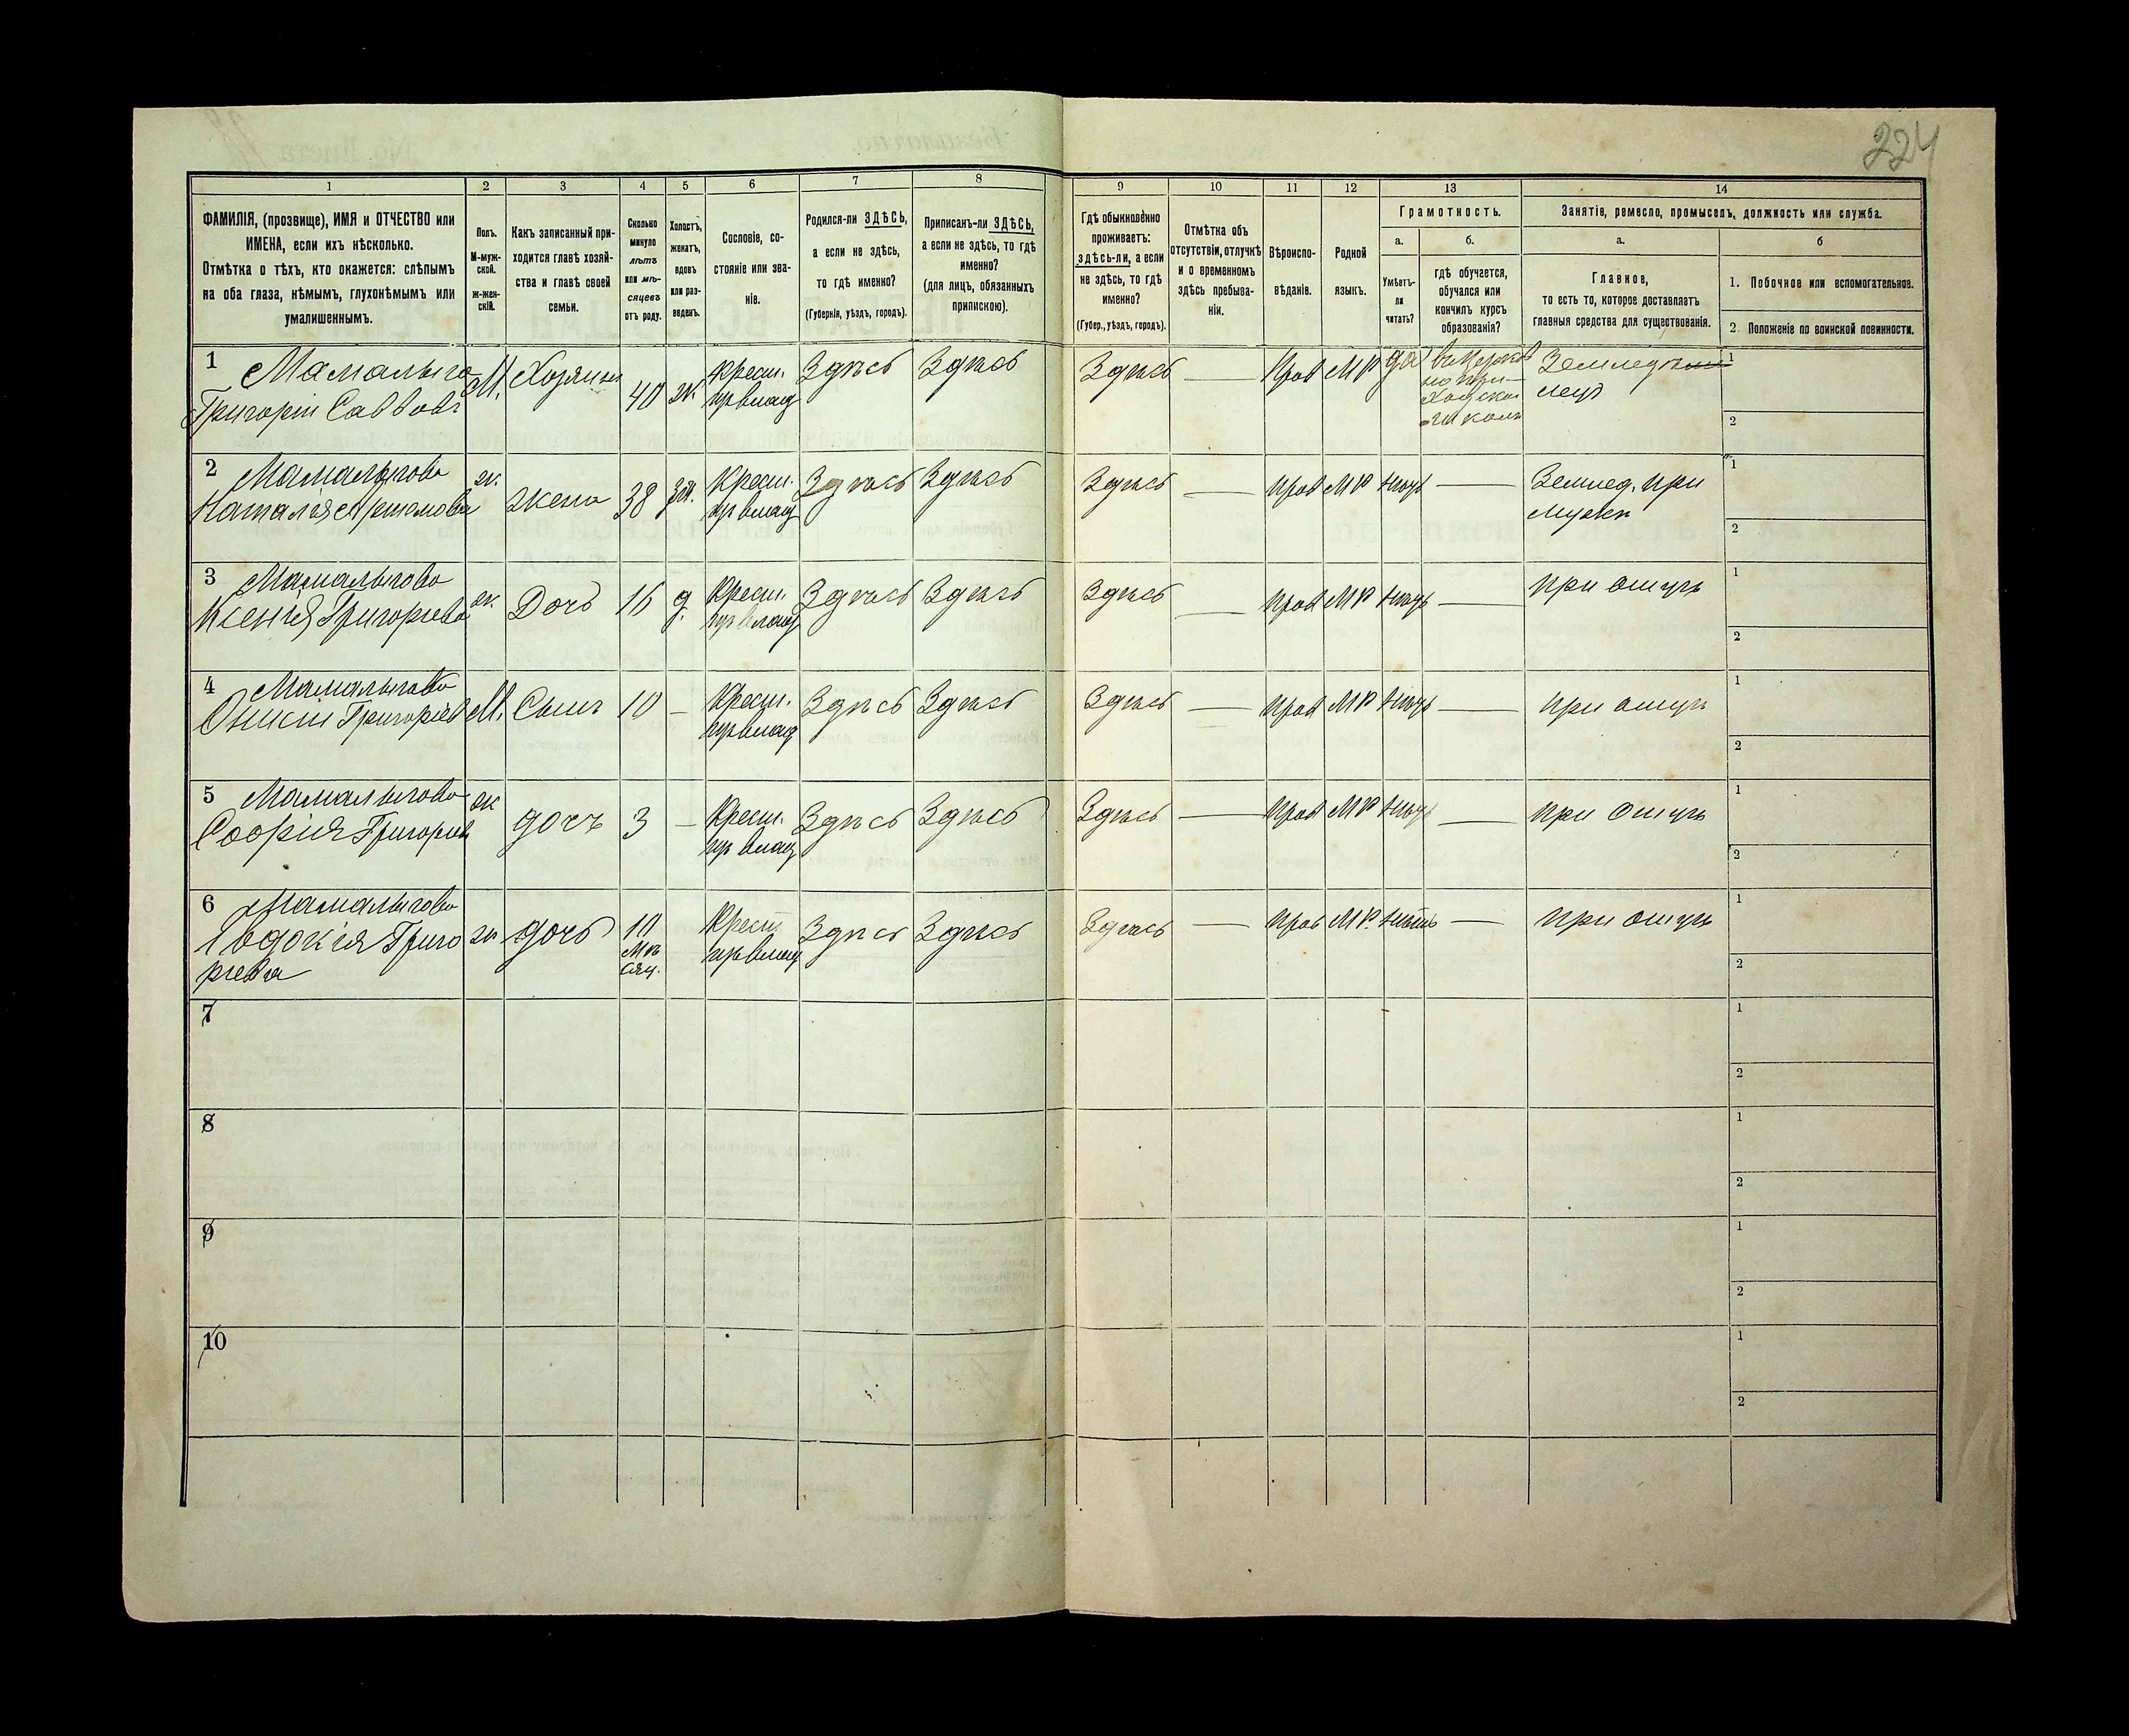 224
1
2
3
4
5
6
7
8
9
10
11
12
13
14
ФАМИЛІЯ, (прозвище), ИМЯ и ОТЧЕСТВО или
ИМЕНА, если ихъ нѣсколько.
Отмѣтка о тѣхъ, кто окажется: слѣпымъ
на оба глаза, нѣмымъ, глухонѣмымъ или
умалишеннымъ.
Полъ.
М-муж-
ской.
ж-жен-
скій.
Какъ записанный при-
ходится главѣ хозяй-
ства и главѣ своей
семьи.
Сколько
минуло
лѣтъ
или мѣ-
сяцевъ
отъ роду.
Холостъ,
женатъ,
вдовъ
или раз-
веденъ.
Сословіе, со-
стояніе или зва-
ніе.
Родился-ли ЗДѢСЬ,
а если не здѣсь,
то гдѣ именно?
(Губернія, уѣздъ, городъ).
Приписанъ-ли ЗДѢСЬ,
а если не здѣсь, то гдѣ
именно?
(для лицъ, обязанныхъ
припискою).
Гдѣ обыкновенно
проживаетъ:
здѣсь-ли, а если
не здѣсь, то гдѣ
именно?
(Губер., уѣздъ, городъ).
Отмѣтка объ
отсутствіи, отлучкѣ
и о временномъ
здѣсь пребыва-
ніи.
Вѣроиспо-
вѣданіе.
Родной
языкъ.
Грамотность.
а.
Умѣетъ-
ли
читать?
б.
гдѣ обучается,
обучался или
кончилъ курсъ
образованія?
Занятіе, ремесло, промыселъ, должность или служба.
а.
Главное,
то есть то, которое доставляетъ
главныя средства для существованія.
б
1. Побочное или вспомогательное.
2. Положеніе по воинской повинности.
1 Мамалыга
Григорій Саввовъ
М.
Хозяинъ
40
ж.
Крест.
Здѣсь
Здѣсь
Здѣсь
—
Прав
МР
да
Земледѣ
лец
1
2
2 Мамалыгова
Наталія Артемова
ж.
жена
38
зм.
Крест.
Здѣсь
Здѣсь
Здѣсь
—
Прав
МР
нѣтъ
—
Землед. при
мужѣ
1
2
3 Мамалыгова
Ксенія Григорьева
ж.
Дочь
16
д.
Крест.
Здѣсь
Здѣсь
Здѣсь
—
Прав
МР
нѣтъ
—
при отцѣ
1
2
4
Григорьев
М.
Сынъ
10
—
Крест.
Здѣсь
Здѣсь
Здѣсь
—
Прав
МР
нѣтъ
—
при отцѣ
1
2
5 Мамалыгова
Софія Григорьев
ж
дочь
3
—
Крест.
Здѣсь
Здѣсь
Здѣсь
—
Прав
МР
нѣтъ
—
при отцѣ
1
2
6 Мамалыгова
Евдокія Григо
рьева
ж
дочь
10
Мѣ
сяц.
Крест.
Здѣсь
Здѣсь
Здѣсь
—
Прав
МР.
нѣтъ
—
при отцѣ
1
2
7
1
2
8
1
2
9
1
2
10
1
2